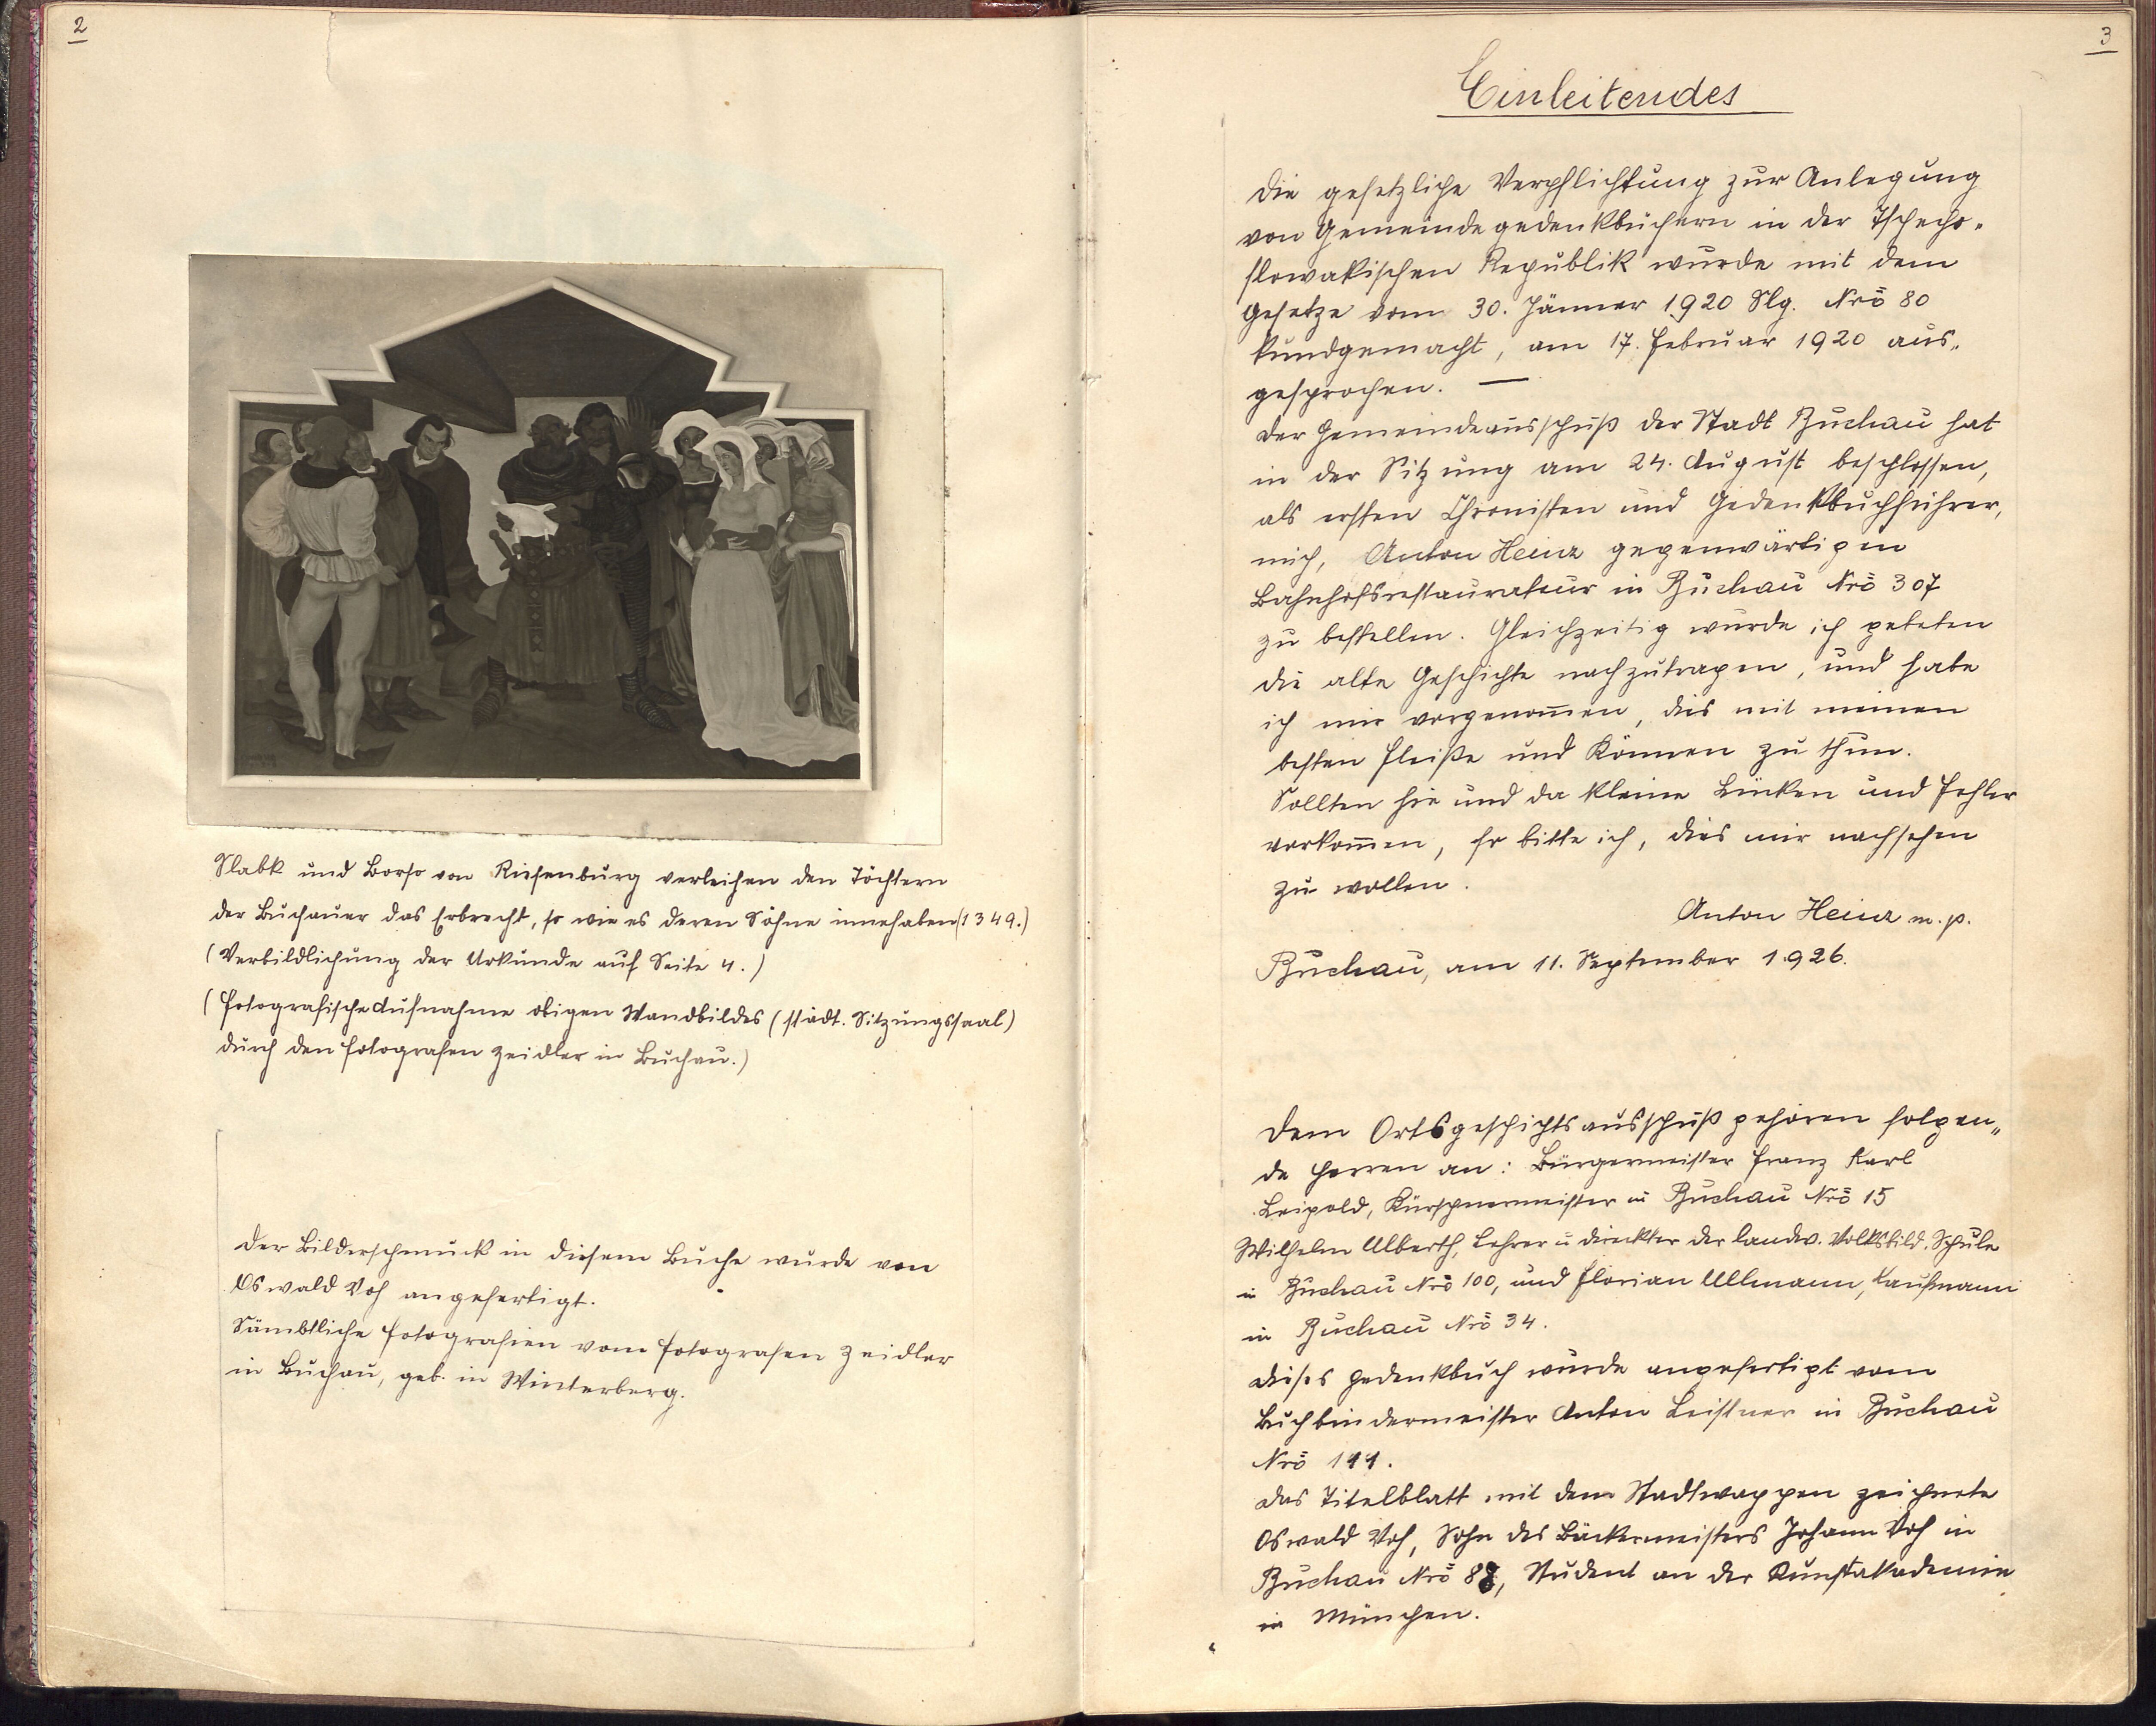 2
Slabk und Borso von Riesenburg verleihen den Töchtern
der Buchauer das Erbrecht, so wie es deren Söhne innehaben (1349.)
(Verbildlichung der Urkunde auf Seite 4.)
(Fotografische Aufnahme obigen Wandbildes (städt. Sitzungssaal)
durch den Fotografen Zeidler in Buchau.)
Der Bilderschmuck in diesem Buche wurde von
Oswald Voh angefertigt.
Sämbtliche Fotografien vom Fotografen Zeidler
in Buchau, geb. in Winterberg.
3
Einleitendes
Die gesetzliche Verpflichtung zur Anlegung
von Gemeindegedenkbüchern in der Tschecho-
slowakischen Republik wurde mit dem
Gesetze vom 30. Jänner 1920 Slg. Nrō 80
kundgemacht, am 17. Februar 1920 aus-
gesprochen. —
Der Gemeindeausschuß der Stadt Buchau hat
in der Sitzung am 24. August beschlossen,
als ersten Chronisten und Gedenkbuchführer,
mich, Anton Heinz gegenwärtigen
Bahnhofsrestaurateur in Buchau Nrō 307
zu bestellen. Gleichzeitig wurde ich gebeten
die alte Geschichte nachzutragen, und habe
ich mir vorgenom̄en, dies mit meinen
besten Fleiße und Können zu thun.
Sollten hie und da kleine Lücken und Fehler
vorkom̄en, so bitte ich, dies mir nachsehen
zu wollen.
Anton Heinz m. p.
Buchau, am 11. September 1926.
Dem Ortsgeschichtsausschuß gehören folgen-
de Herren an: Bürgermeister Franz Karl
Leipold, Kürschnermeister in Buchau Nrō 15
Wilhelm Alberth, Lehrer u Direkter der landw. Volksbild. Schule
in Buchau Nrō 100, und Florian Ullmann, Kaufmann
in Buchau Nrō 34.
Dieses Gedenkbuch wurde angefertigt vom
Buchbindermeister Anton Leistner in Buchau
Nrō 141.
Das Titelblatt mit dem Stadtwappen zeichnete
Oswald Voh, Sohn des Bäckermeisters Johann Voh in
Buchau Nrō 88, Student an der Kunstakademie
in München.